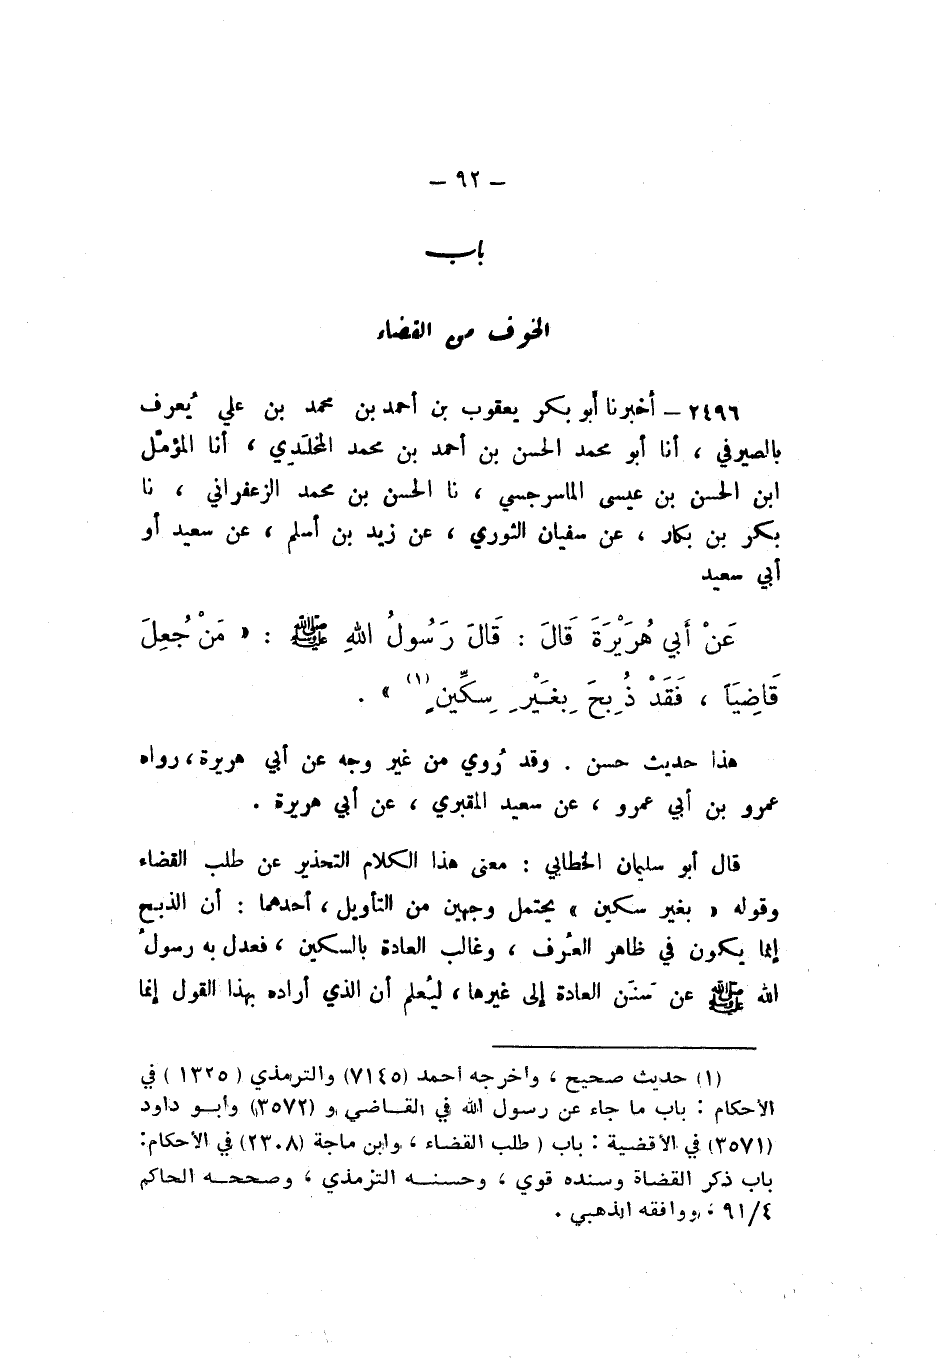 – ٩٢ –
باب
الخوف من القضاء
٢٤٩٦ – أخبرنا أبو بكر يعقوب بن أحمد بن محمد بن علي يُعرف
بالصيرفي ، أنا أبو محمد الحسن بن أحمد بن محمد المخلَدي ، أنا المؤمّل
ابن الحسن بن عيسى الماسرجسي ، نا الحسن بن محمد الزعفراني ، نا
بكر بن بكار ، عن سفيان الثوري ، عن زيد بن أسلم ، عن سعيد أو
أبي سعيد
عَنْ أَبِي هُرَيْرَةَ قَالَ : قَالَ رَسُولُ اللهِ ﷺ : « مَنْ جُعِلَ
قَاضِيَاً ، فَقَدْ ذُبِحَ بِغَيْرِ سِكِّينٍ(١) » .
هذا حديث حسن . وقد رُوي من غير وجه عن أبي هريرة ، رواه
عمرو بن أبي عمرو ، عن سعيد المقبري ، عن أبي هريرة .
قال أبو سليمان الخطابي : معنى هذا الكلام التحذير عن طلب القضاء
وقوله « بغير سكين » يحتمل وجهين من التأويل ، أحدهما : أن الذبح
إنما يكون في ظاهر العُرف ، وغالب العادة بالسكين ، فعدل به رسولُ
الله ﷺ عن سَنَن العادة إلى غيرها ، ليُعلم أن الذي أراده بهذا القول إنما
(١) حديث صحيح ، وأخرجه أحمد (٧١٤٥) والترمذي ( ١٣٢٥ ) في
الأحكام : باب ما جاء عن رسول الله في القاضي و (٣٥٧٢) وأبو داود
(٣٥٧١) في الأقضية : باب ( طلب القضاء ، وابن ماجة (٢٣٠٨) في الأحكام:
باب ذكر القضاة وسنده قوي ، وحسنه الترمذي ، وصححه الحاكم
٩١/٤ ، ووافقه الذهبي .